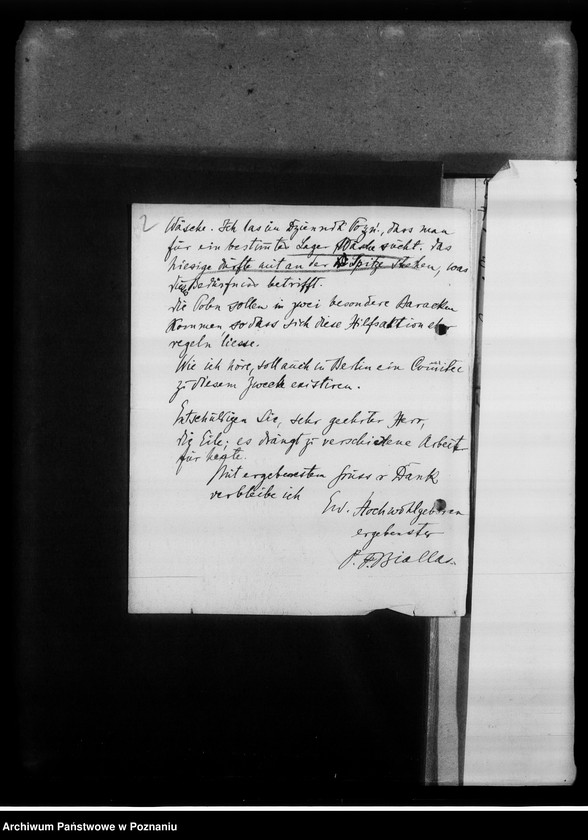 2
Wäsche. Ich las im Dziennik Pozn., dass man
für ein bestimmtes Lager Wäsche sucht. Das
hiesige dürfte mit an der Spitze stehen, was
die Bedürfnisse betrifft.
Die Polen sollen in zwei besondere Baracken
kommen, sodass sich diese Hilfsaktion eher
regeln liesse.
Wie ich höre, soll auch in Berlin ein Comitee
zu diesem Zweck existiren.
Entschuldigen Sie, sehr geehrter Herr,
die Eile; es drängt zu verschiedene Arbeit
für heute.
Mit ergebenstem Gruss u Dank
verbleibe ich
Ew. Hochwohlgeboren
ergebenster
P. F. Biallas.
Archiwum Państwowe w Poznaniu